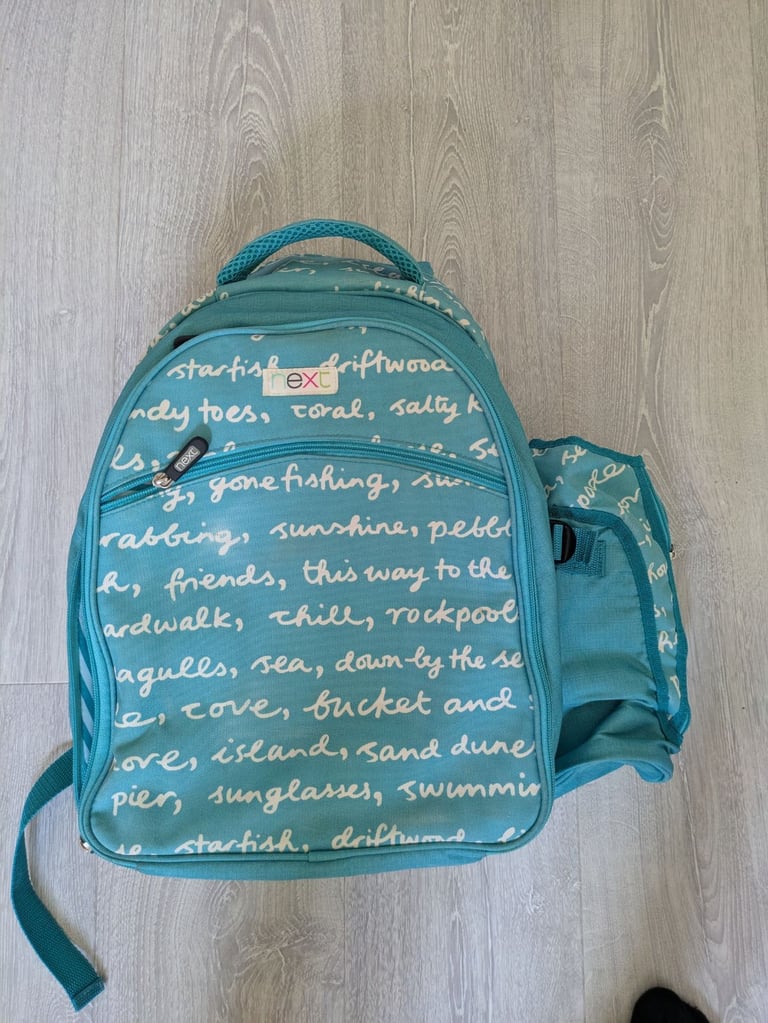 starfish, driftwood
next
ndy toes, coral, salty k
ls,
next
g, gone fishing, su
rabbing, sunshine, pebbl
h, friends, this way to the
ardwalk, chill, rockpool
agulls, sea, down by the se
e, cove, bucket and s
ore, island, sand dune
pier, sunglasses, swimmin
starfish, driftwood,